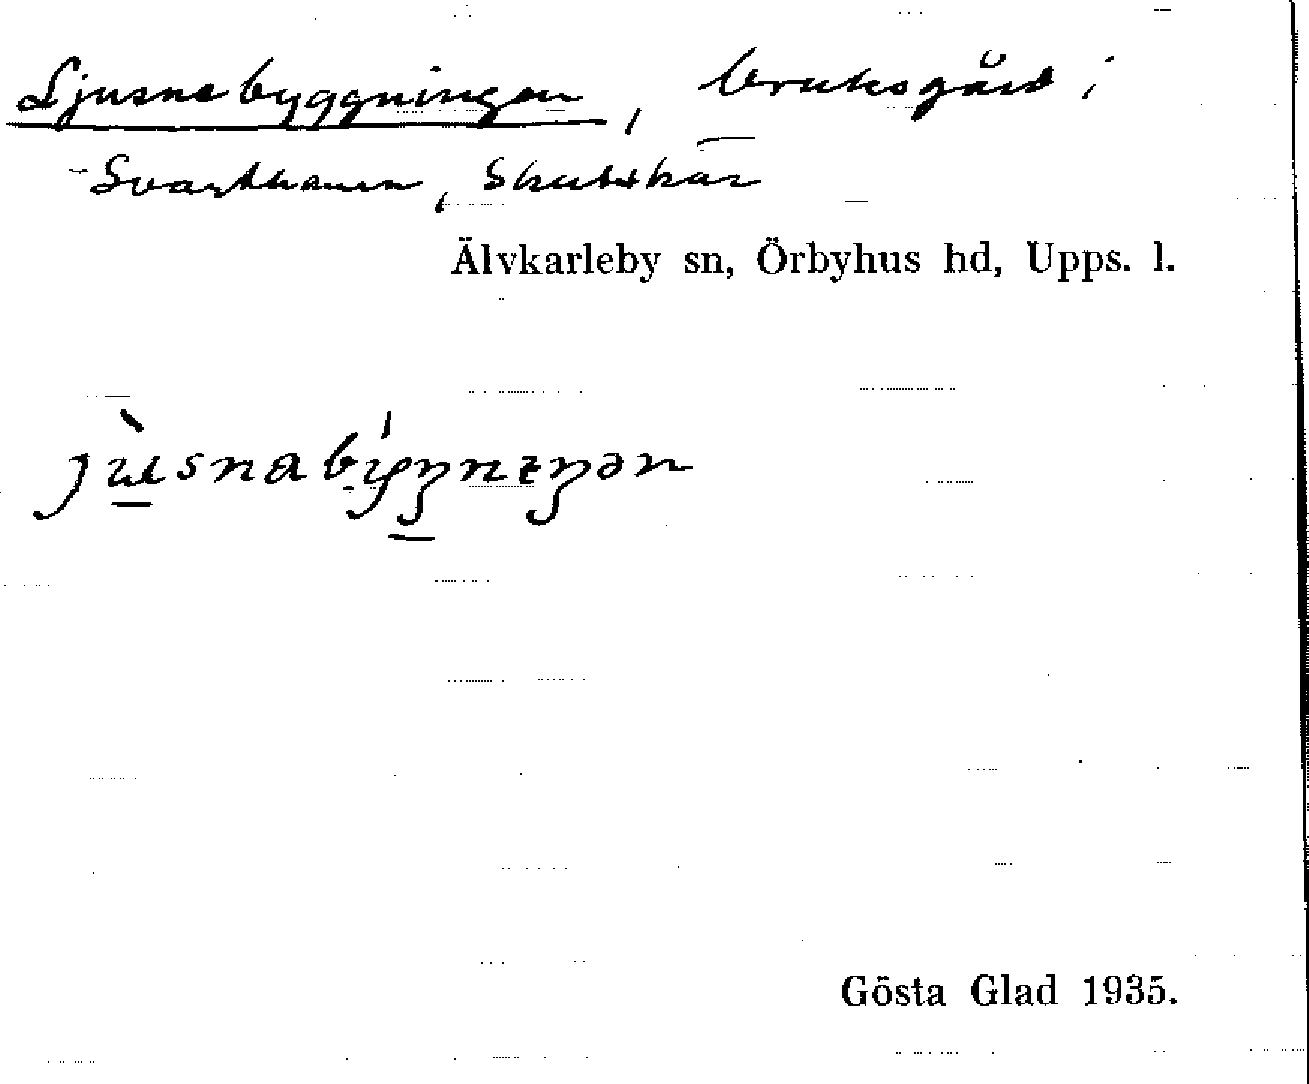 Ljusnebyggningen, bruksgård i
Svarthamn, Skutskär
Älvkarleby sn, Örbyhus hd, Upps. l.
jùsnabýŋnɪŋən
Gösta Glad 1935.